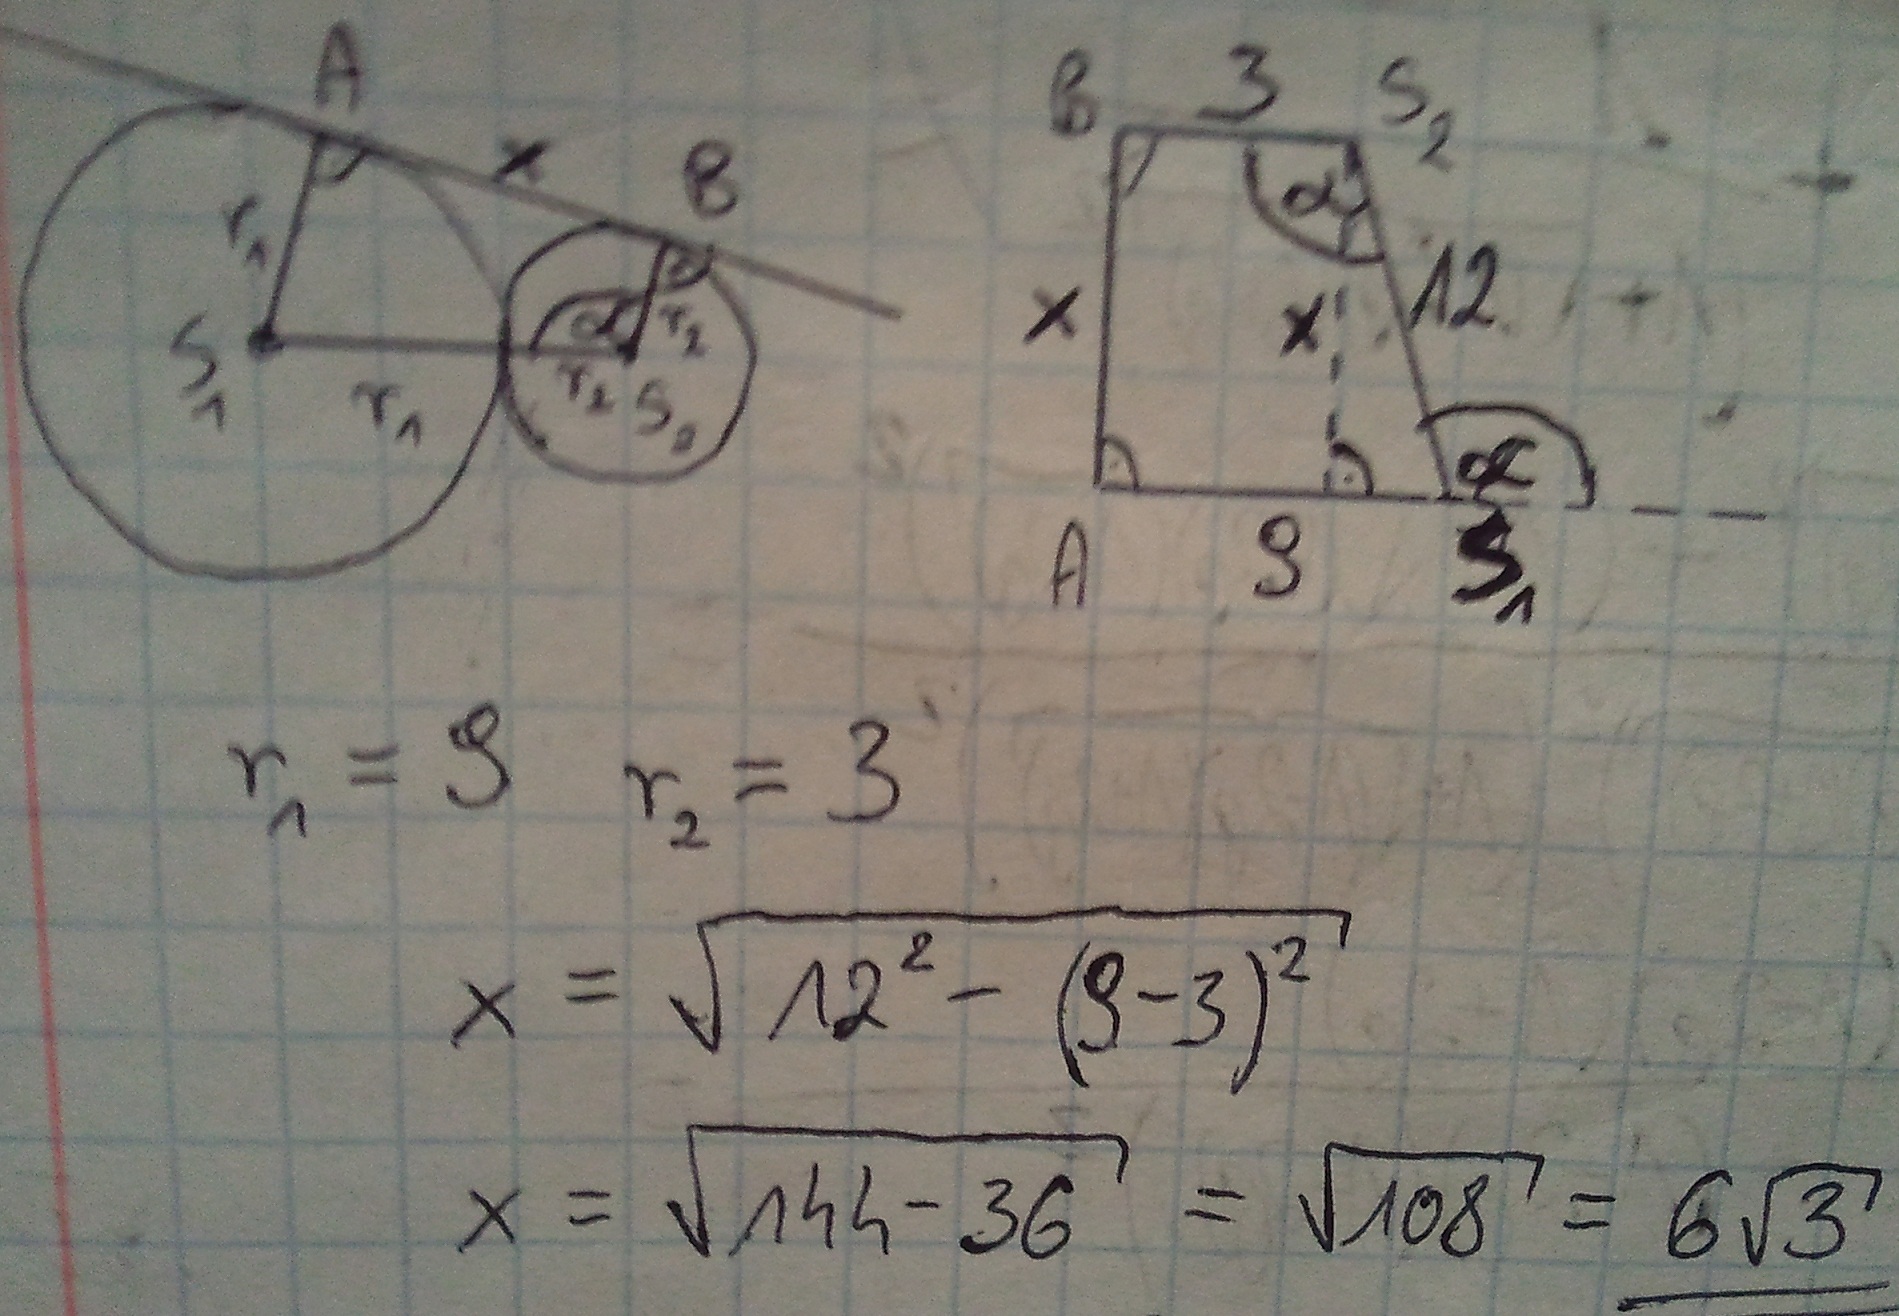 A
x
B
r₁
S₁
r₁
α
r₂
r₂
S₂
B 3 S₂
α
x
x
12
α
A
9
S₁
r₁ = 9 r₂ = 3
x = √(12² - (9-3)²)
x = √(144 - 36) = √108 = 6√3